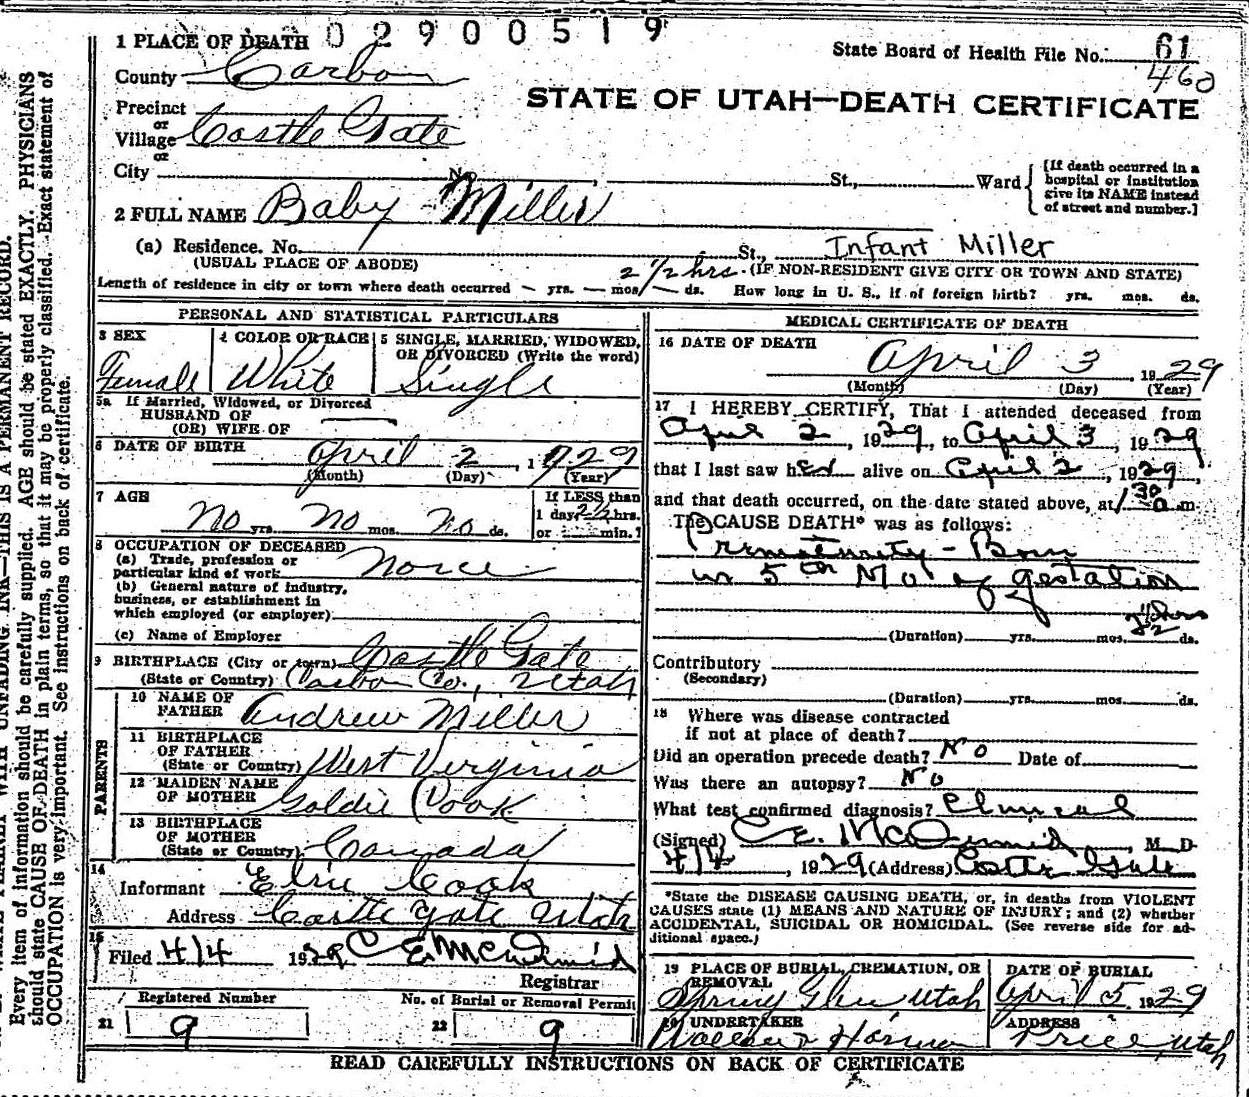 02900519
1 PLACE OF DEATH
State Board of Health File No. 61
460
County Carbon
STATE OF UTAH—DEATH CERTIFICATE
Precinct
or
Village Castle Gate
or
City No. , St., Ward
[If death occurred in a hospital or institution give its NAME instead of street and number.]
2 FULL NAME Baby Miller
(a) Residence. No. St., Infant Miller
(USUAL PLACE OF ABODE) (IF NON-RESIDENT GIVE CITY OR TOWN AND STATE)
2 1/2 hrs.
Length of residence in city or town where death occurred — yrs. — mos. — ds. How long in U. S., if of foreign birth? yrs. mos. ds.
PERSONAL AND STATISTICAL PARTICULARS
3 SEX
Female
4 COLOR OR RACE
White
5 SINGLE, MARRIED, WIDOWED, OR DIVORCED (Write the word)
Single
5a If Married, Widowed, or Divorced
HUSBAND OF
(OR) WIFE OF
6 DATE OF BIRTH April 2 1929
(Month) (Day) (Year)
7 AGE
No yrs. No mos. No ds.
If LESS than
1 day, 2 1/2 hrs.
or min.?
8 OCCUPATION OF DECEASED
(a) Trade, profession or
particular kind of work None
(b) General nature of industry,
business, or establishment in
which employed (or employer)
(c) Name of Employer
9 BIRTHPLACE (City or town) Castle Gate
(State or Country) Carbon Co., Utah
PARENTS
10 NAME OF
FATHER Andrew Miller
11 BIRTHPLACE
OF FATHER
(State or Country) West Virginia
12 MAIDEN NAME
OF MOTHER Goldie Cook
13 BIRTHPLACE
OF MOTHER
(State or Country) Canada
14
Informant Cook
Address Castle Gate Utah
15
Filed 4/4 1929 C E McDermid
Registrar
Registered Number
21 9
No. of Burial or Removal Permit
22 9
MEDICAL CERTIFICATE OF DEATH
16 DATE OF DEATH
April 3, 1929
(Month) (Day) (Year)
17 I HEREBY CERTIFY, That I attended deceased from
April 2, 1929, to April 3, 1929
that I last saw her alive on April 2, 1929,
and that death occurred, on the date stated above, at 1 30 a m
The CAUSE DEATH* was as follows:
Prematurity - Born
in 5th Mo of gestation
2 1/2 hrs
(Duration) yrs. mos. ds.
Contributory
(Secondary)
(Duration) yrs. mos. ds.
18 Where was disease contracted
if not at place of death?
Did an operation precede death? No Date of
Was there an autopsy? No
What test confirmed diagnosis? Clinical
(Signed) C E. McDermid, M. D.
4/4, 1929 (Address) Castle Gate
*State the DISEASE CAUSING DEATH, or, in deaths from VIOLENT
CAUSES state (1) MEANS AND NATURE OF INJURY; and (2) whether
ACCIDENTAL, SUICIDAL OR HOMICIDAL. (See reverse side for ad-
ditional space.)
19 PLACE OF BURIAL, CREMATION, OR
REMOVAL
Spring Glen Utah
DATE OF BURIAL
April 5, 1929
20 UNDERTAKER
Wallace Harmon
ADDRESS
Price, Utah
READ CAREFULLY INSTRUCTIONS ON BACK OF CERTIFICATE
UNFADING INK—THIS IS A PERMANENT RECORD.
Every item of information should be carefully supplied. AGE should be stated EXACTLY. PHYSICIANS
should state CAUSE OF DEATH in plain terms, so that it may be properly classified. Exact statement of
OCCUPATION is very important. See instructions on back of certificate.